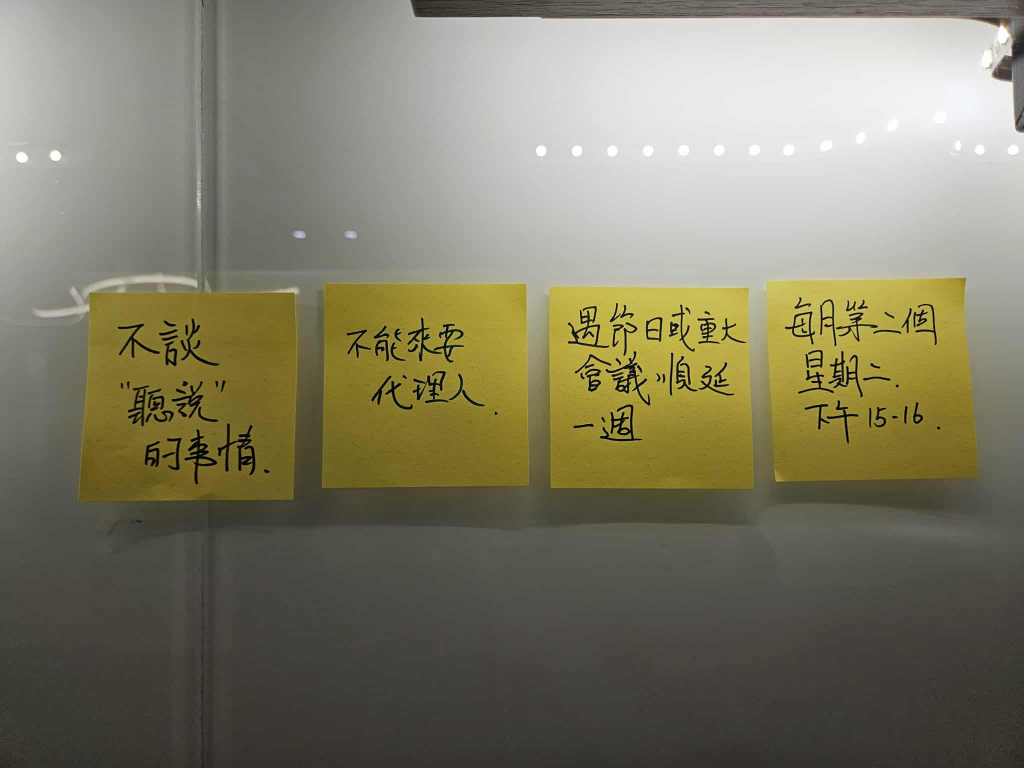 不談
"聽說"
的事情.
不能來要
代理人.
遇節日或重大
會議,,順延
一週
每月第二個
星期二.
下午15-16.